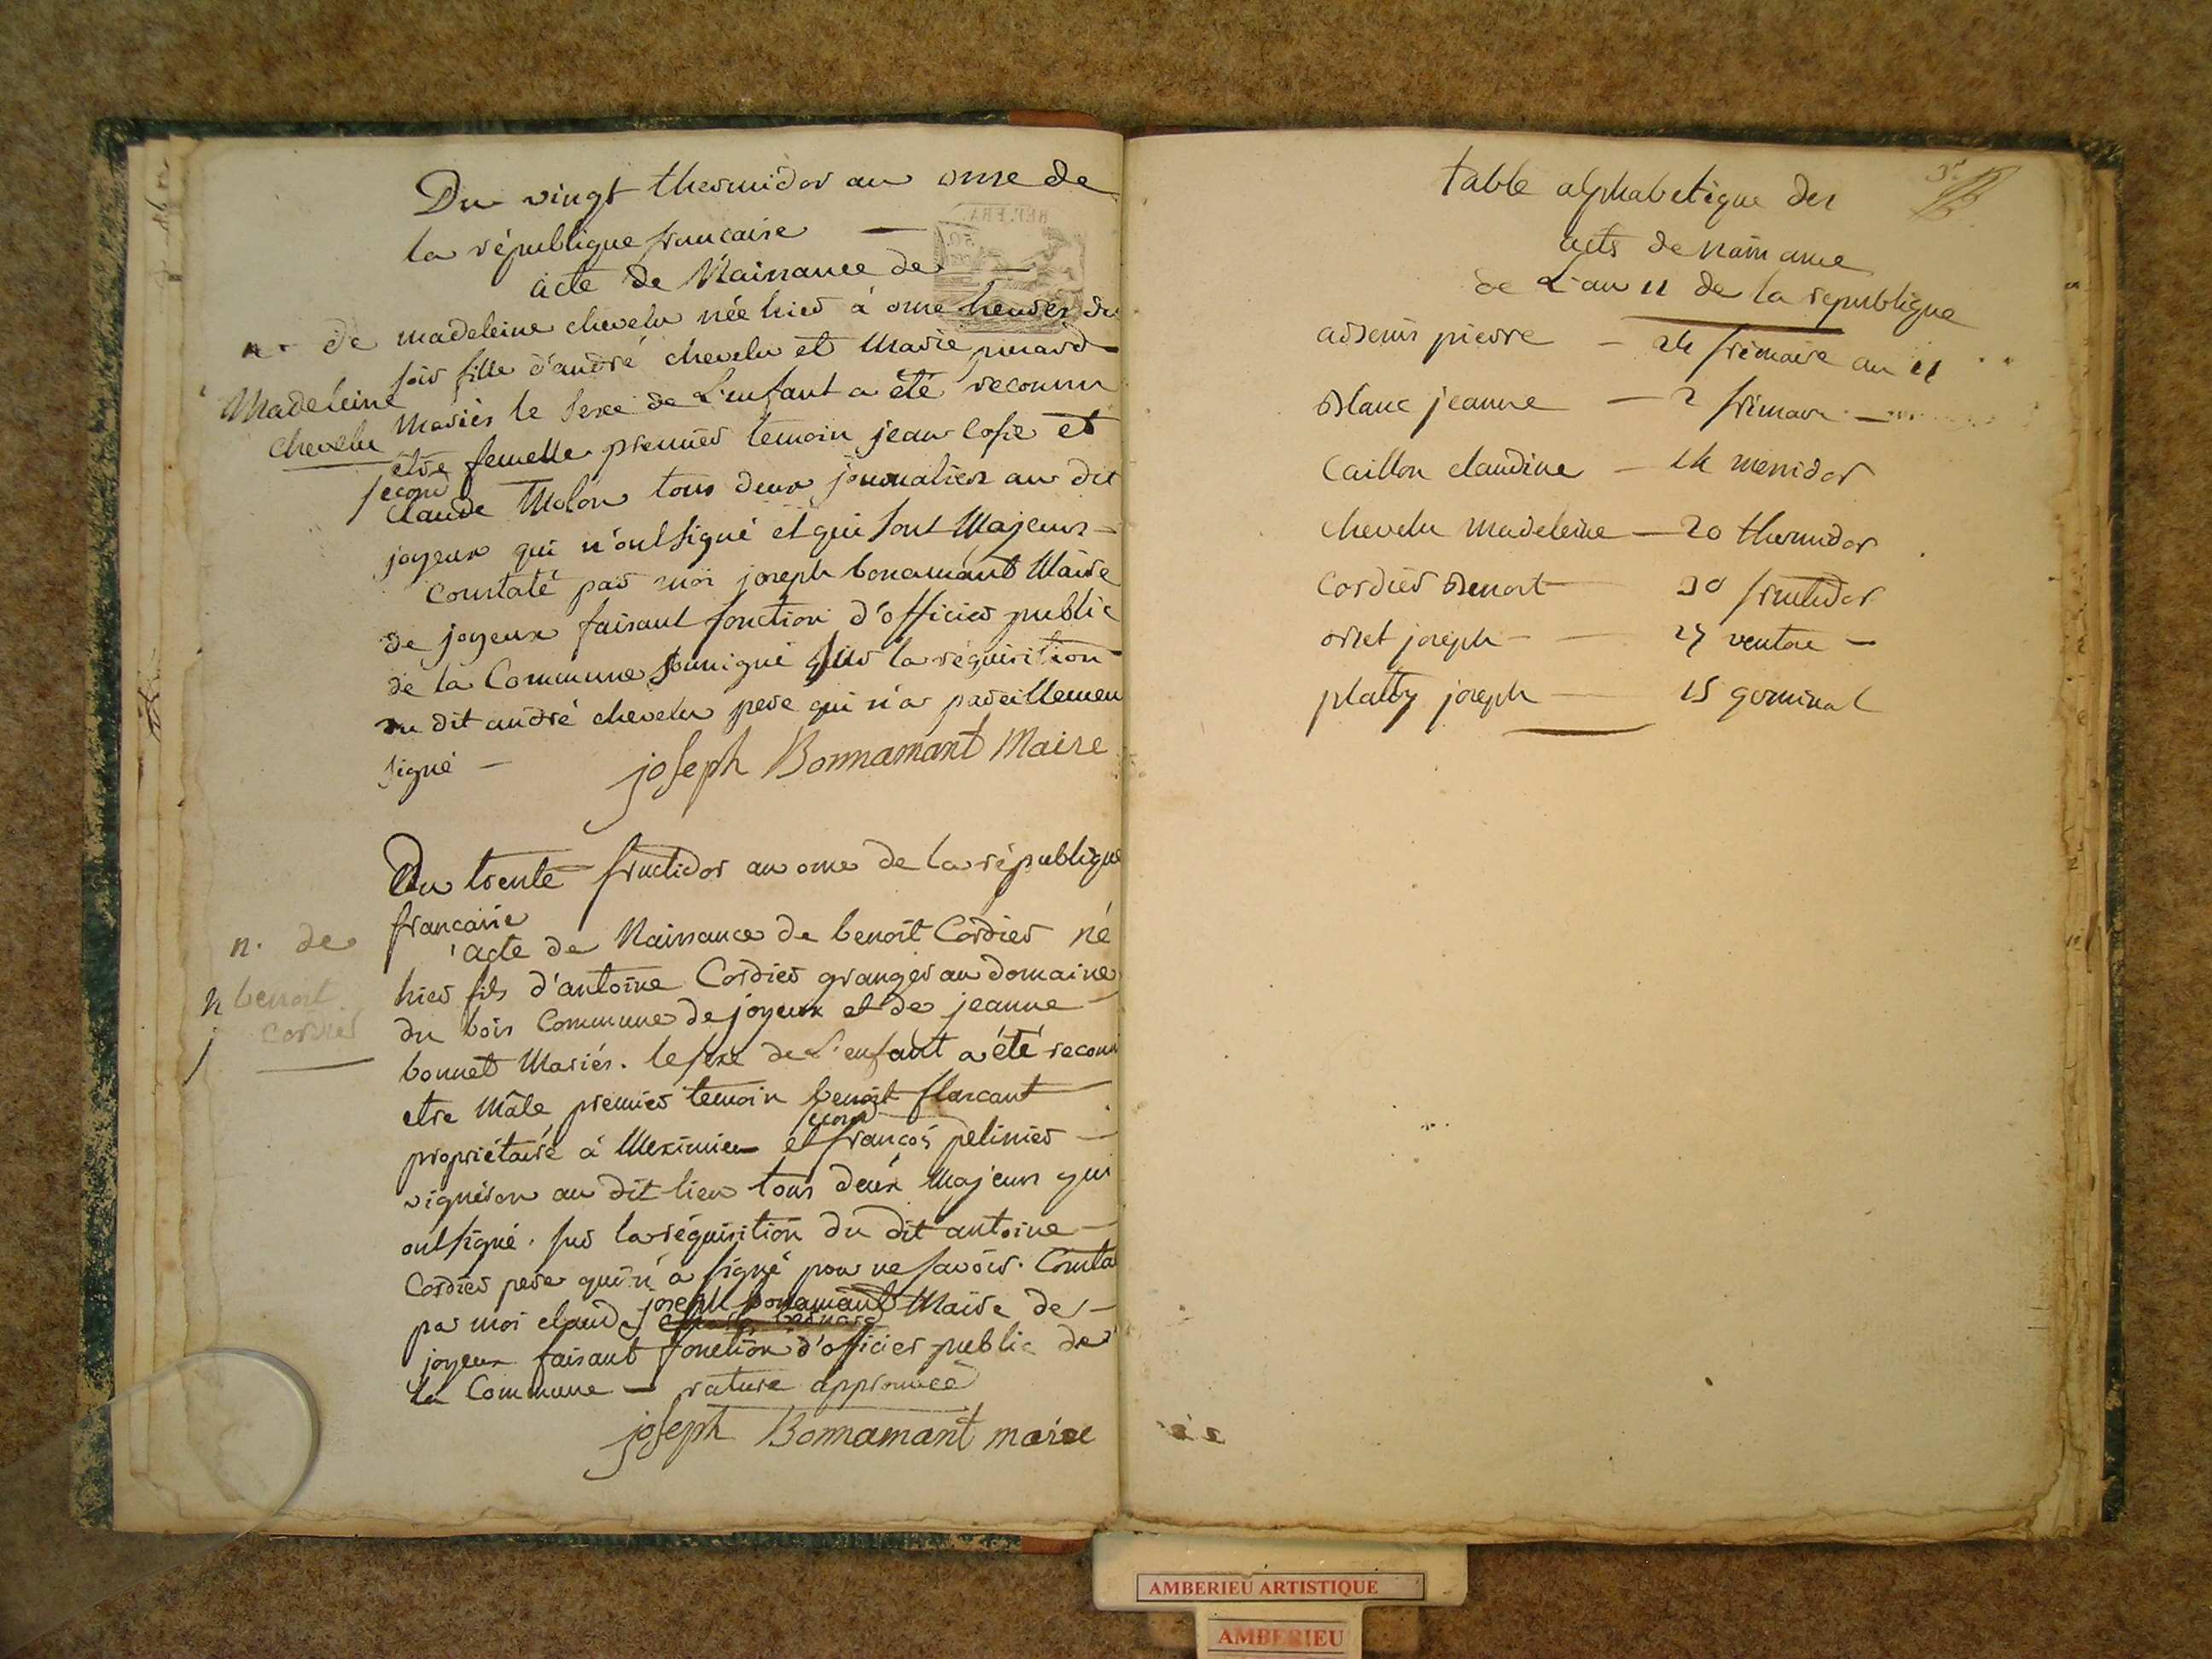 Du vingt thermidor an onze de
la république francaise —
acte de Naissance de —
n. de madeleine chevelu née hier à onze heures du
soir fille d'andré chevelu et Marie
Madeleine chevelu
mariés le sexe de L'enfant a été reconnu
être femelle premier temoin jean et
second
claude Molon tous deux journalier au dit
joyeux qui n'ont signé et qui sont Majeurs —
constaté par moi joseph bonamant Maire
de joyeux faisant fonction d'officier public
de la Commune soussigné sur la réquisition
du dit andré chevelu pere qui n'a pareillemen
signé —
joseph Bonnamant Maire
Du trente fructidor an onze de la république
francaise
n. de
benoit
cordier
acte de Naissance de benoit Cordier né
hier fils d'antoine Cordier granger au domaine
du bois Commune de joyeux et de jeanne
bonnet Mariés. le sexe de L'enfant a été reconu
etre Mâle premier temoin benoit flarcant
second
propriétaire à Meximieu et françois pelinier —
vigneron au dit lieu tous deux Majeurs qui
ont signé. sur la réquisition du dit antoine —
Cordier pere qui n'a signé pour ne savoir. Consta
joseph bonamant
par moi claude Maire de —
joyeux faisant fonction d'officier public de
la Commune — rature approuvée
joseph Bonnamant maire
table alphabetique des
acts de naissance
de L'an 11 de la republique
pierre — 24 frimaire an 11
Blanc jeanne — 2 frimaire —
Caillon claudine — 14 messidor
chevelu Madeleine — 20 thermidor
Cordier Benoit — 30 fructidor
orset joseph — 27 ventose —
platty joseph — 15 germinal
AMBERIEU ARTISTIQUE
AMBERIEU